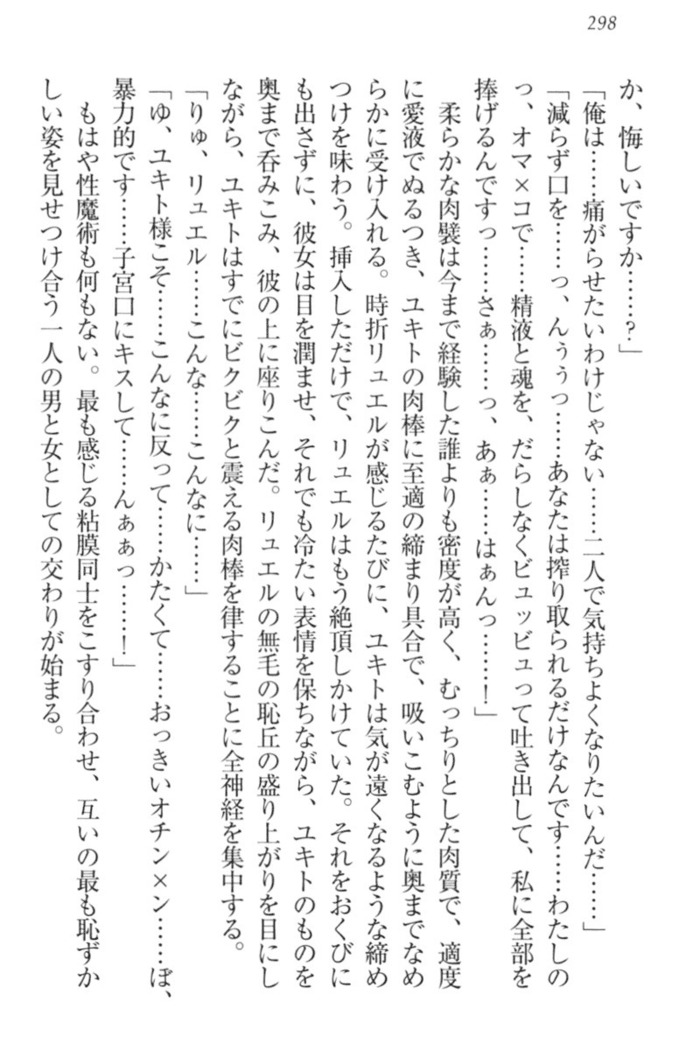 298
か、悔しいですか……?」
「俺は……痛がらせたいわけじゃない……二人で気持ちよくなりたいんだ……」
「減らず口を……っ、んぅぅっ……あなたは搾り取られるだけなんです……わたしの
っ、オマ×コで……精液と魂を、だらしなくビュッビュって吐き出して、私に全部を
捧げるんですっ……さぁ……っ、あぁ……はぁんっ……!」
　柔らかな肉襞は今まで経験した誰よりも密度が高く、むっちりとした肉質で、適度
に愛液でぬるつき、ユキトの肉棒に至適の締まり具合で、吸いこむように奥までなめ
らかに受け入れる。時折リュエルが感じるたびに、ユキトは気が遠くなるような締め
つけを味わう。挿入しただけで、リュエルはもう絶頂しかけていた。それをおくびに
も出さずに、彼女は目を潤ませ、それでも冷たい表情を保ちながら、ユキトのものを
奥まで呑みこみ、彼の上に座りこんだ。リュエルの無毛の恥丘の盛り上がりを目にし
ながら、ユキトはすでにビクビクと震える肉棒を律することに全神経を集中する。
「りゅ、リュエル……こんな……こんなに……」
「ゆ、ユキト様こそ……こんなに反って……かたくて……おっきいオチン×ン……ぼ、
暴力的です……子宮口にキスして……んぁぁっ……!」
　もはや性魔術も何もない。最も感じる粘膜同士をこすり合わせ、互いの最も恥ずか
しい姿を見せつけ合う一人の男と女としての交わりが始まる。